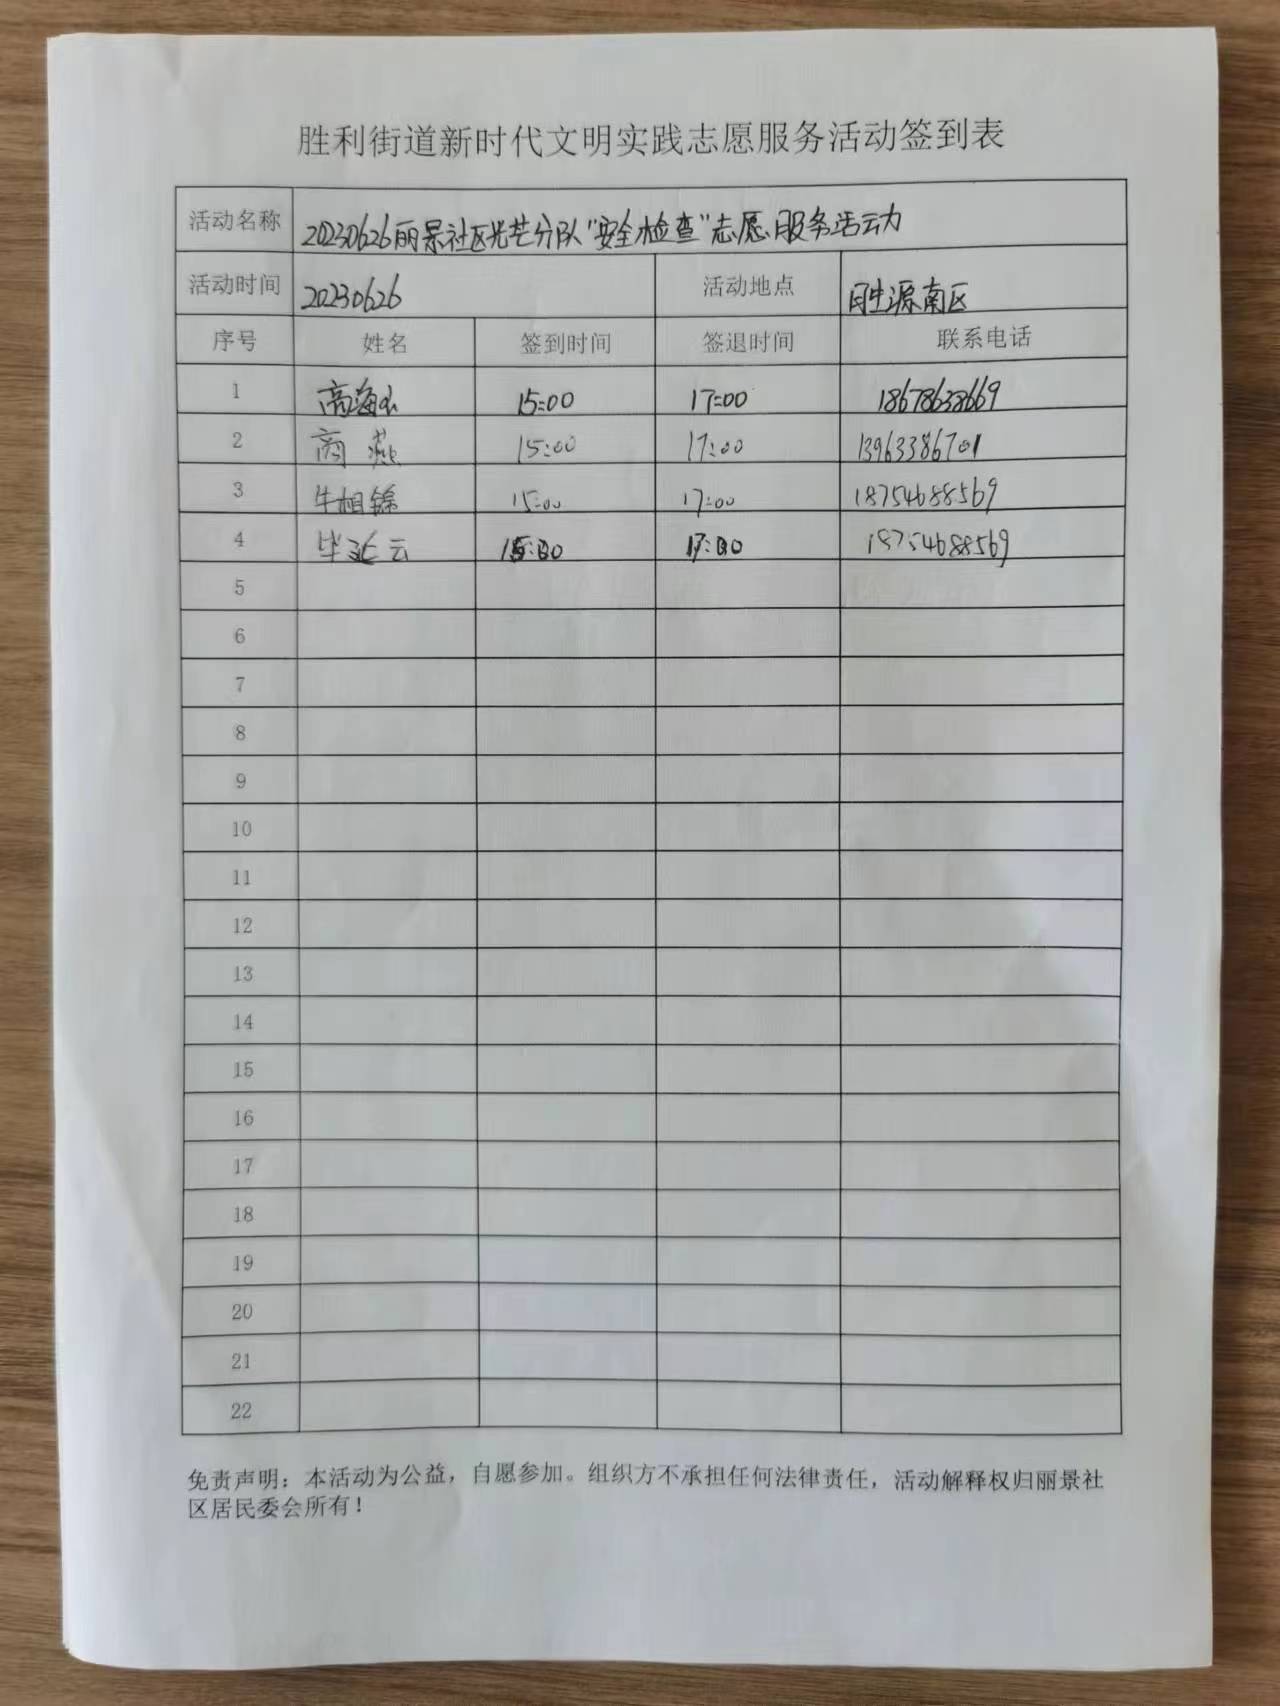 胜利街道新时代文明实践志愿服务活动签到表
活动名称 20230626丽景社区光芒分队“安全检查”志愿服务活动
活动时间 20230626 活动地点 胜源南区
序号 姓名 签到时间 签退时间 联系电话
1 15:00 17:00 18678638669
2 商燕 15:00 17:00 13963386701
3 牛相锦 15:00 17:00 18754688569
4 17:00 18754688569
5
6
7
8
9
10
11
12
13
14
15
16
17
18
19
20
21
22
免责声明：本活动为公益，自愿参加。组织方不承担任何法律责任，活动解释权归丽景社
区居民委会所有！